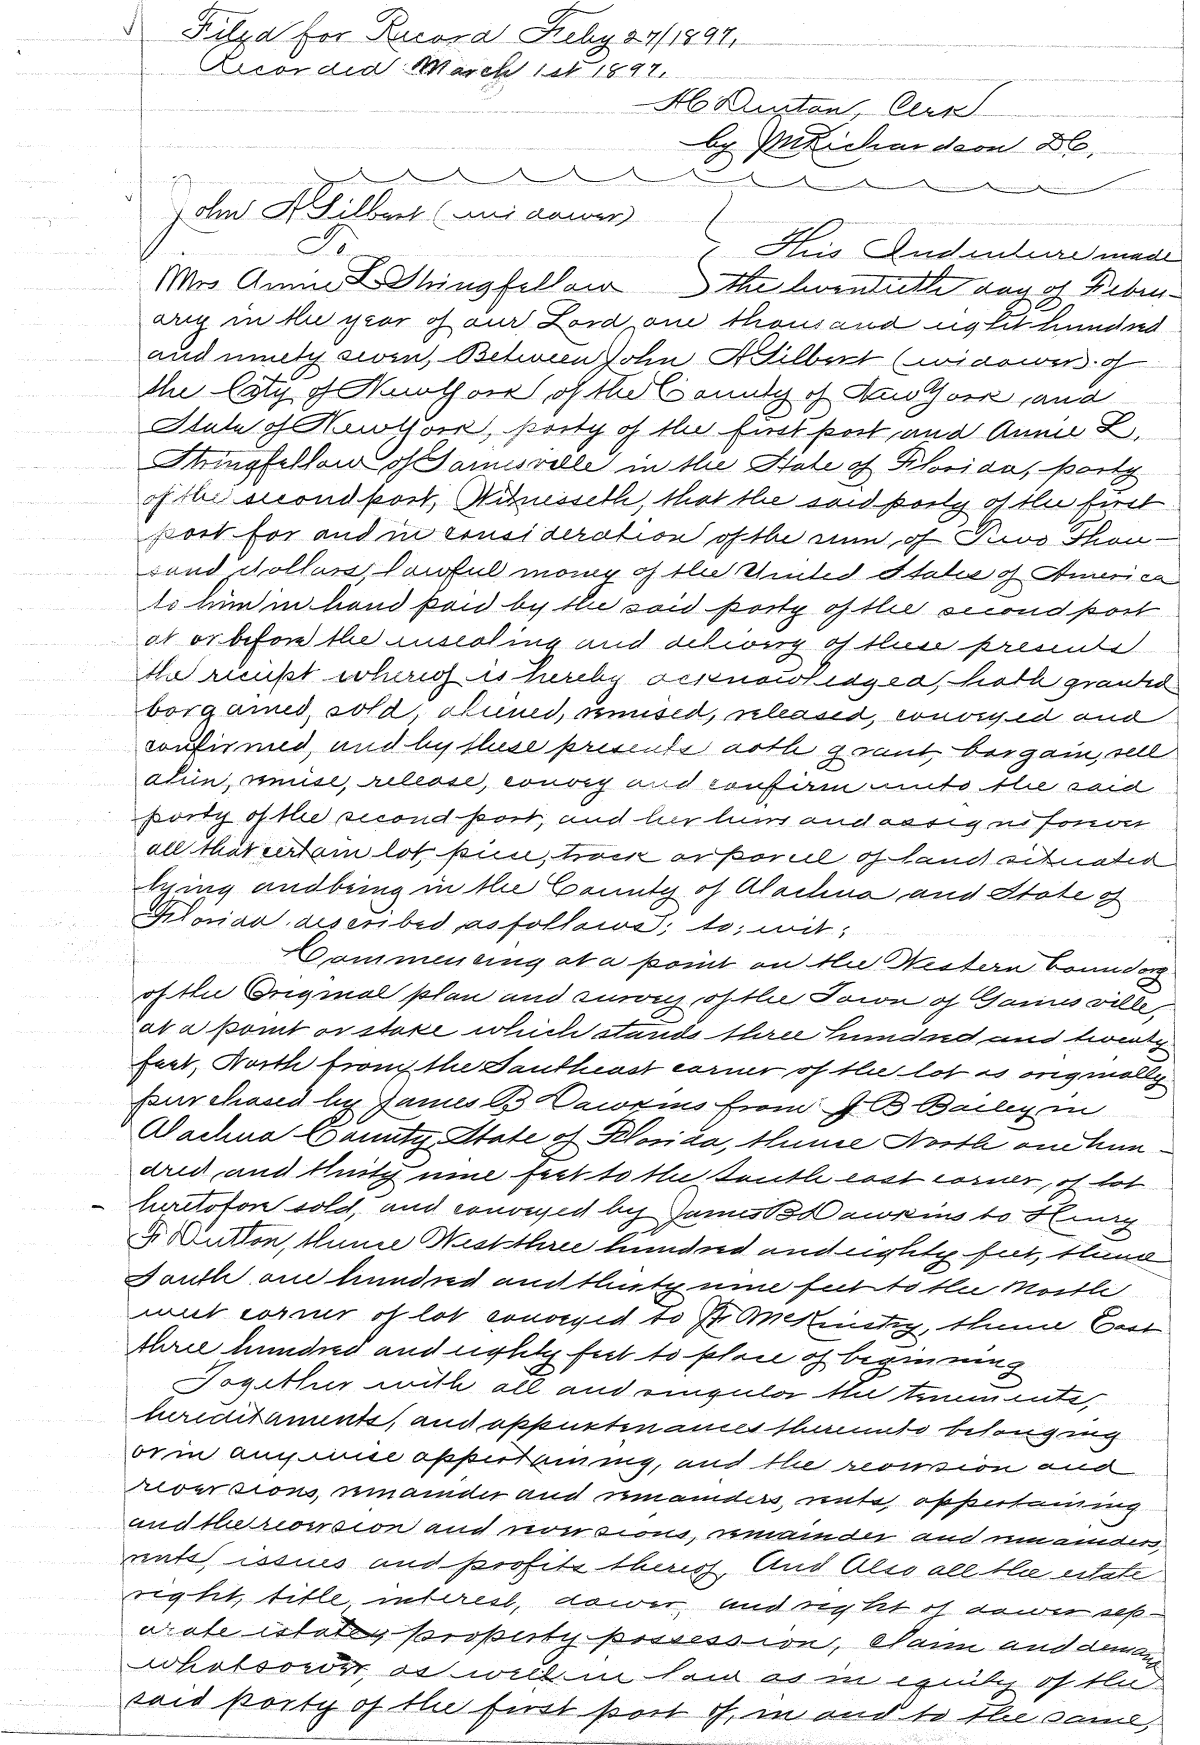 Filed for Record Feby 27/1897,
Recorded March 1st 1897.
H C Denton, Clerk
by J M Richardson D C,
John A Gilbert (widower)
To
This Indenture made
Mrs Annie L Stringfellow
the twentieth day of Febru-
ary in the year of our Lord, one thousand eight hundred
and ninety seven, Between John A Gilbert (widower) of
the City of New York, of the County of New York, and
State of New York, party of the first part, and Annie L.
Stringfellow of Gainesville in the State of Florida, party
of the second part, Witnesseth, that the said party of the first
part for and in consideration of the sum of Two Thou-
sand dollars, lawful money of the United States of America
to him in hand paid by the said party of the second part
at or before the ensealing and delivery of these presents
the receipt whereof is hereby acknowledged, hath granted
bargained, sold, aliened, remised, released, conveyed and
confirmed, and by these presents doth grant, bargain, sell
alien, remise, release, convey and confirm unto the said
party of the second part, and her heirs and assigns forever
all that certain lot, piece, track or parcel of land situated
lying and being in the County of Alachua and State of
Florida described as follows; to; wit;
Commencing at a point on the Western boundary
of the Original plan and survey of the Town of Gainesville,
at a point or stake which stands three hundred and twenty
feet, North from the Southeast corner of the lot as originally
purchased by James B Dawkins from J B Bailey in
Alachua County, State of Florida, thence North one hun-
dred and thirty nine feet to the South east corner, of lot
heretofore sold, and conveyed by James B Dawkins to Henry
F Dutton, thence West three hundred and eighty feet, thence
South one hundred and thirty nine feet to the North
west corner of lot conveyed to McKinstry, thence East
three hundred and eighty feet to place of beginning
Together with all and singular the tenements,
hereditaments, and appurtenances thereunto belonging
or in any wise appertaining, and the reversion and
reversions, remainder and remainders, rents, appertaining
and the reversion and reversions, remainder and remainders,
rents, issues and profits thereof, And Also all the estate
right, title, interest, dower, and right of dower sep-
arate estate, property possession, claim and demand
whatsoever, as well in law as in equity of the
said party of the first part of, in and to the same,